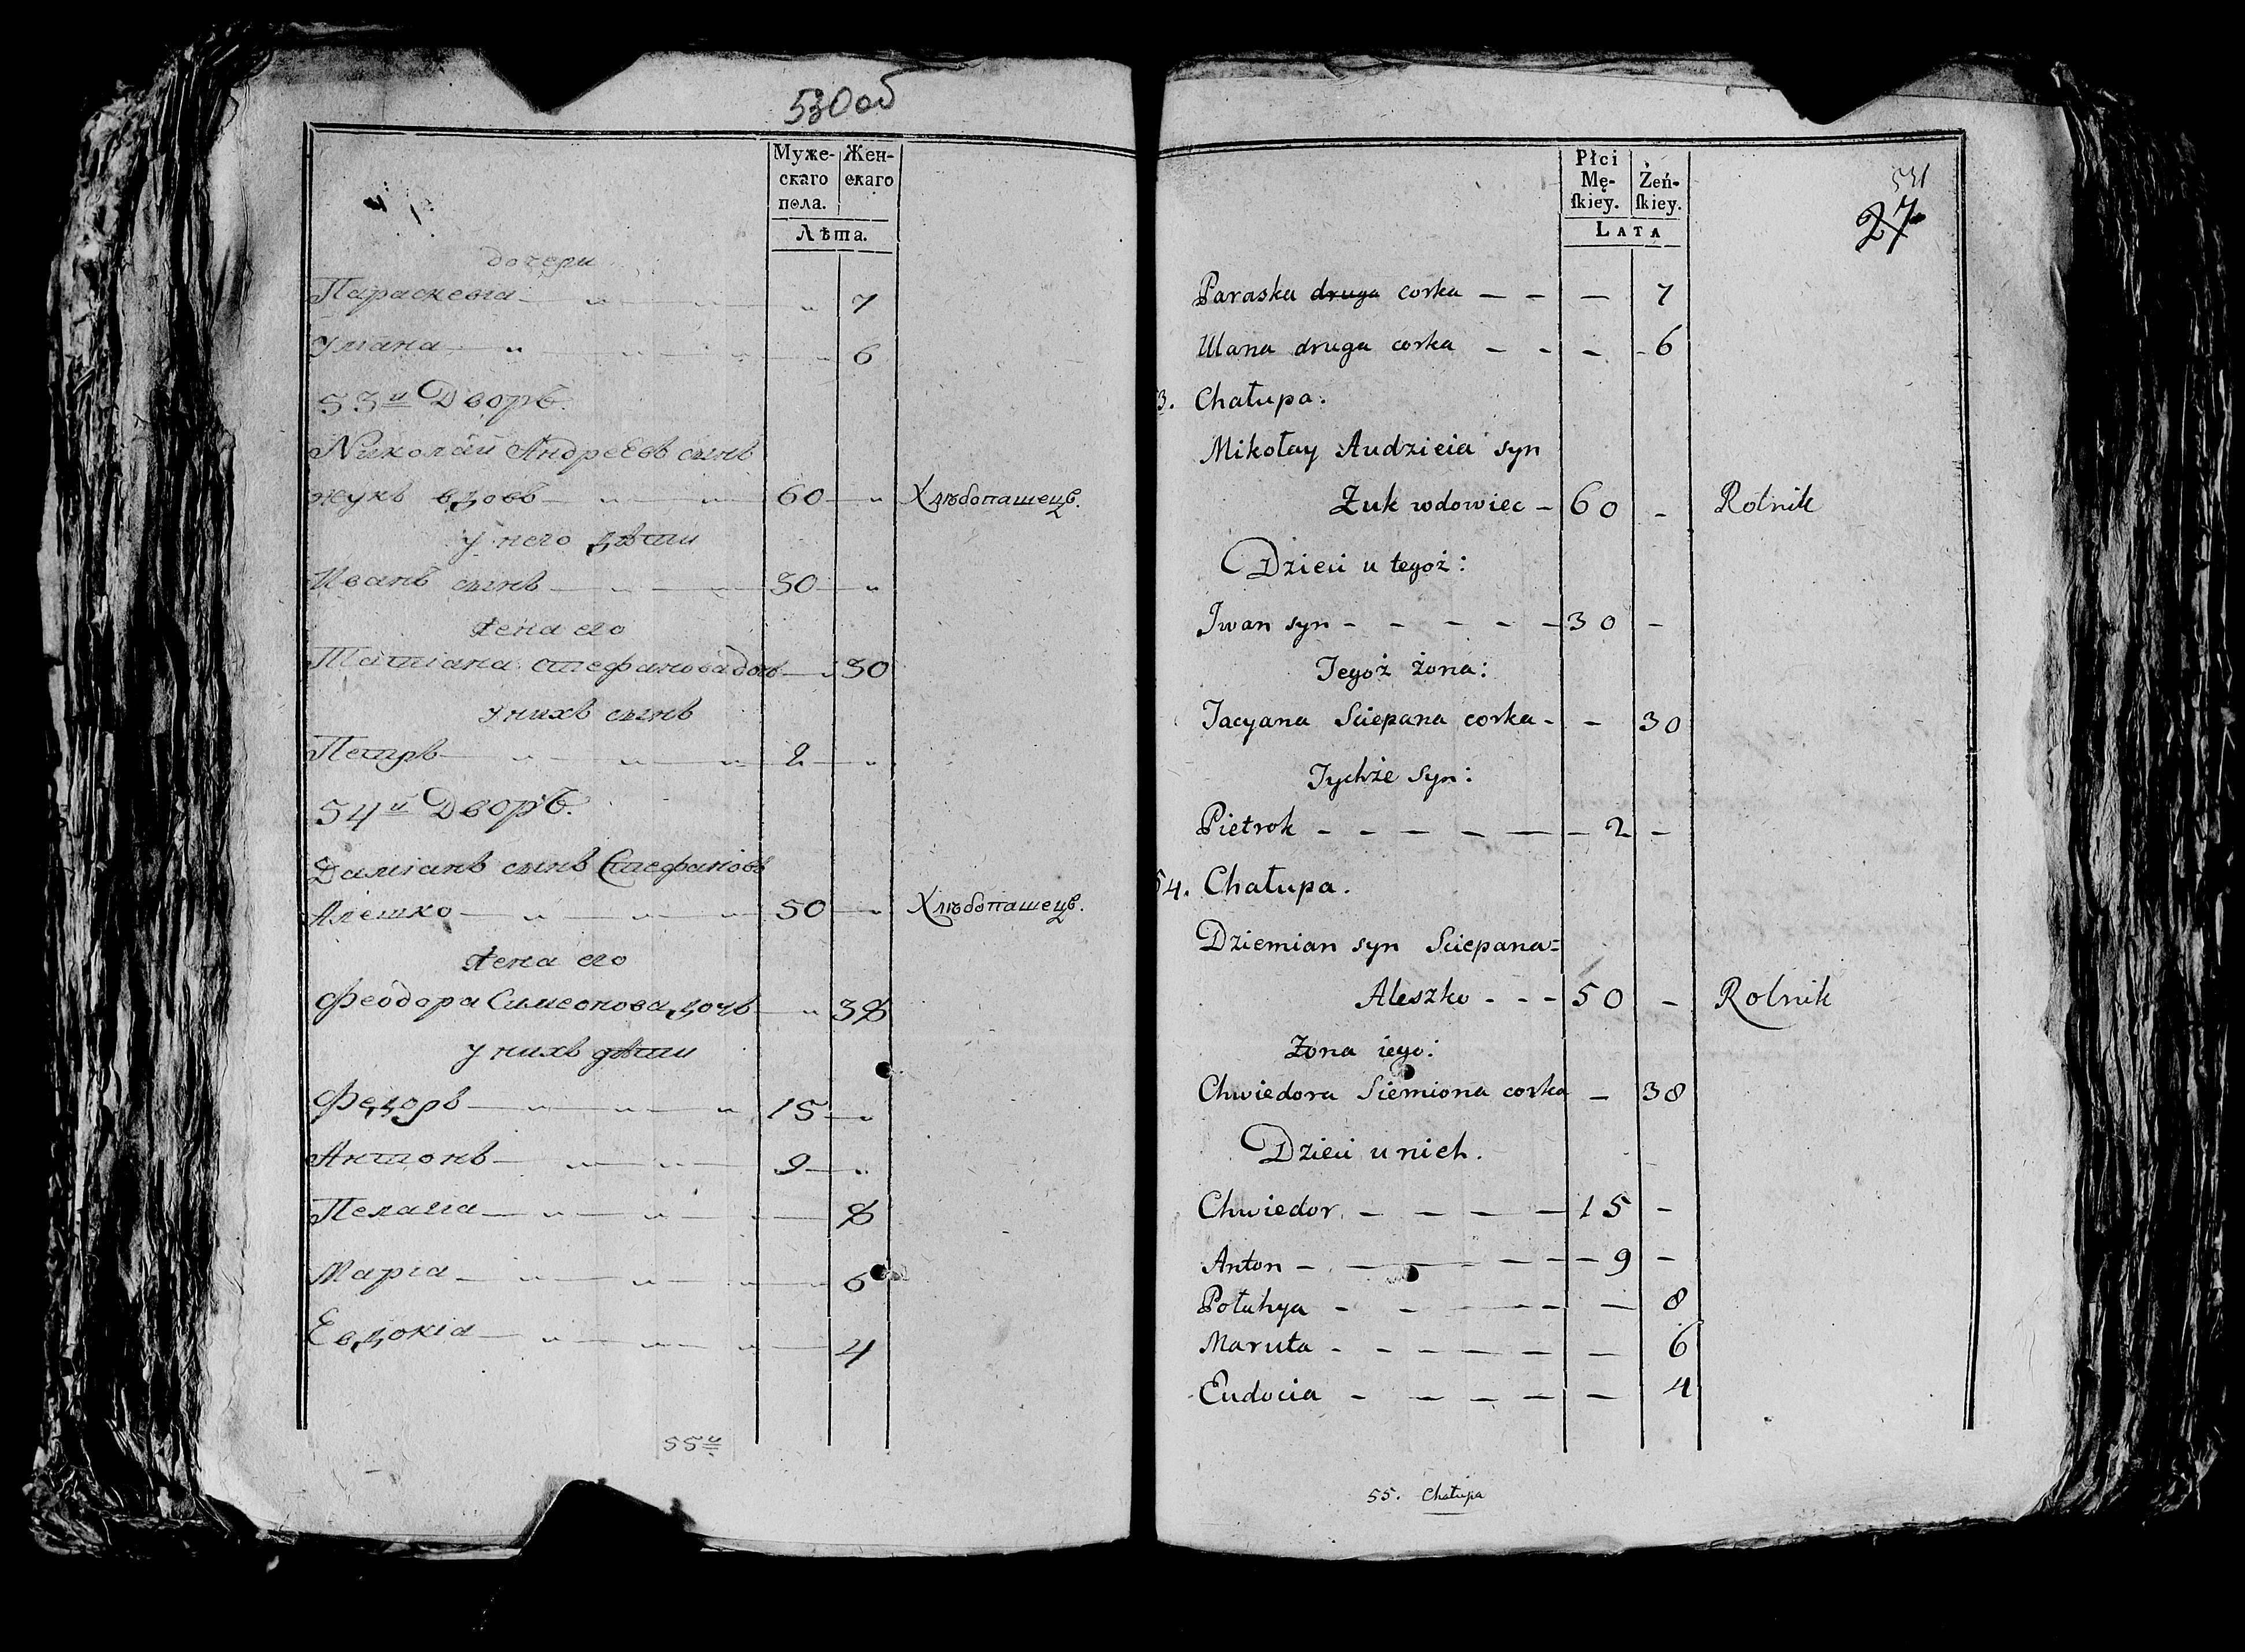 530об
Муже- Жен-
скаго скаго
пола.
Лѣта.
дочери
Параскевіа 7
Уліана 6
53й Дворъ.
Николай Андреевъ сынъ
жукъ вдовъ 60 Хлѣбопашецъ.
у него дѣти
Иванъ сынъ 30
Жена его
Татіана стефанова дочь 30
у нихъ сынъ
Петръ 2
54й Дворъ.
Даміанъ сынъ Стефановъ
Алешко 50 Хлѣбопашецъ.
Жена его
Феодора Симеонова дочь 38
у нихъ дѣти
Федоръ 15
Антонъ 9
Пелагіа 8
Маріа 6
Евдокіа 4
55й
Płci
Mę- Żeń-
skiey. skiey.
LATA
531
27
Paraska druga corka — — — 7
Ulana druga corka — - - - 6
3. Chałupa.
Mikołay Audzieia syn
Żuk wdowiec - 60 - Rolnik
Dzieci u tegoż:
Iwan syn - - - - - 30 -
Tegoż żona:
Tacyana Sciepana corka - - 30
Tychże syn:
Pietrok - - - - - - 2 -
54. Chałupa.
Dziemian syn Sciepana=
Aleszko - - - 50 - Rolnik
Żona iego:
Chwiedora Siemiona corka - 38
Dzieci u nich.
Chwiedor - - - - 15 -
Anton - - - - - - 9 -
Połuhya - - - - - - 8
Maruta - - - - - - 6
Eudocia - - - - - - 4
55. Chałupa